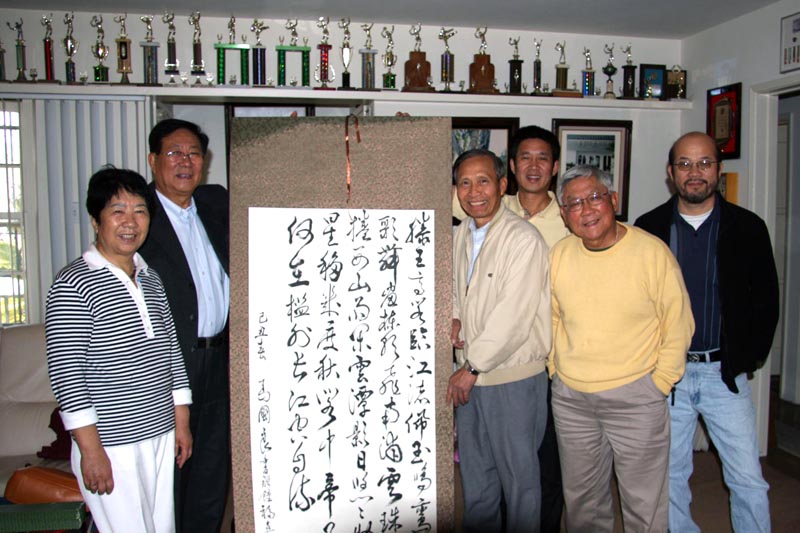 滕王高閣臨江渚佩玉鳴鸞
歌舞畫棟朝飛南浦雲珠
捲西山雨閑雲潭影日悠悠
星移幾度秋閣中帝子
何在檻外長江空自流
己丑
國良書